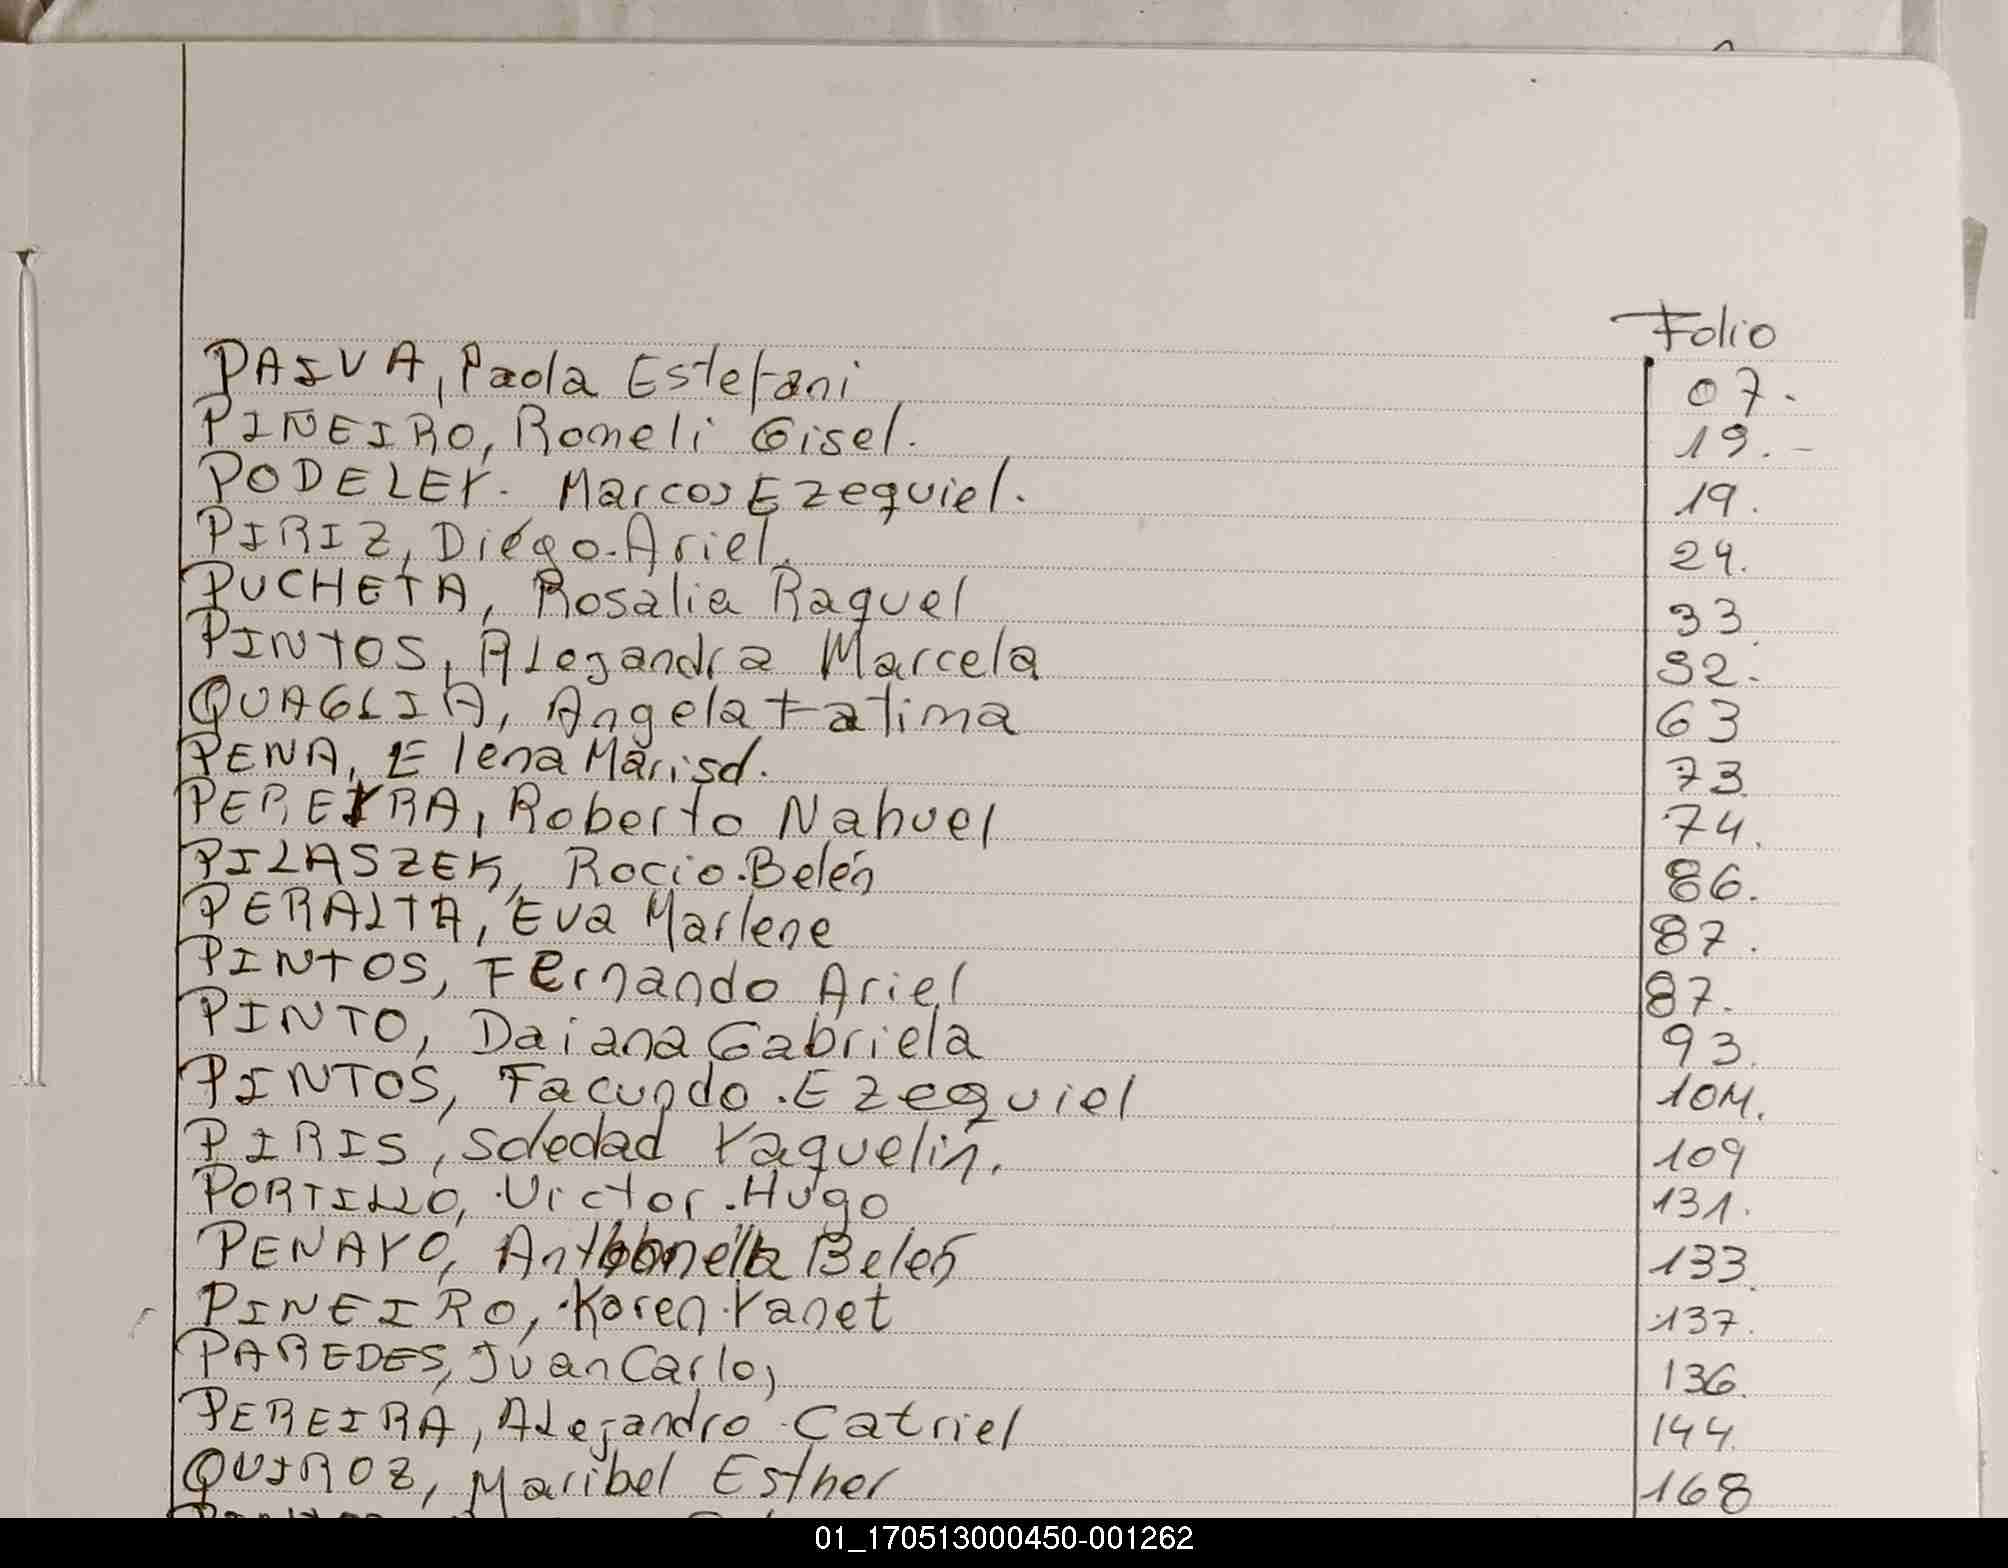 Folio
PAIVA, Paola Estefani 07.
PIÑEIRO, Romeli Gisel. 19.-
PODELEY. Marcos Ezequiel. 19.
PIRIZ, Diego Ariel. 24.
PUCHETA, Rosalia Raquel 33.
PINTOS, Alejandra Marcela 32.
QUAGLIA, Angela Fatima 63
PENA, Elena Marisol. 73.
PEREYRA, Roberto Nahuel 74.
PILASZEK, Rocio Belén 86.
PERALTA, Eva Marlene 87.
PINTOS, Fernando Ariel 87.
PINTO, Daiana Gabriela 93.
PINTOS, Facundo Ezequiel 104.
PIRIS, Soledad Yaquelin. 109
PORTILLO, Victor Hugo 131.
PENAYO, Anthonella Belén 133.
PINEIRO, Karen Yanet 137.
PAREDES, Juan Carlos 136.
PEREIRA, Alejandro Catriel 144.
QUIROZ, Maribel Esther 168
01_170513000450-001262